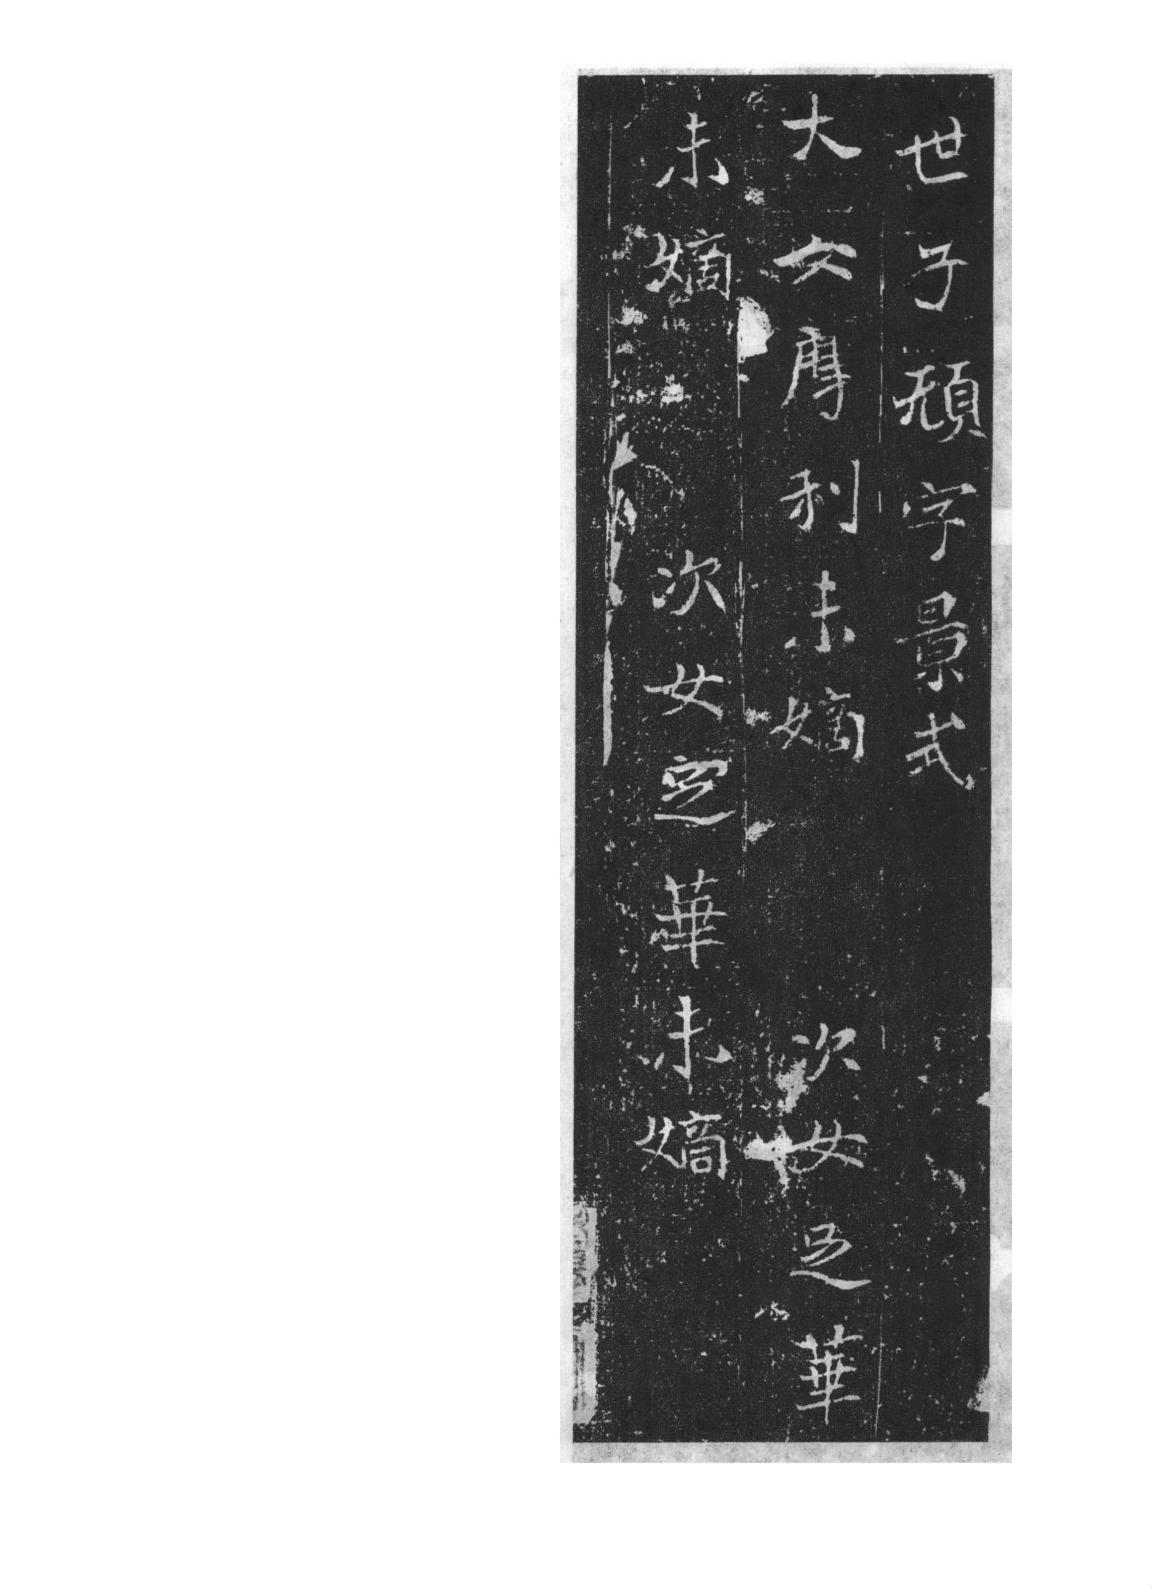 世子頊字景式
大女摩利未嫡　次女足華
未嫡　次女定華未嫡